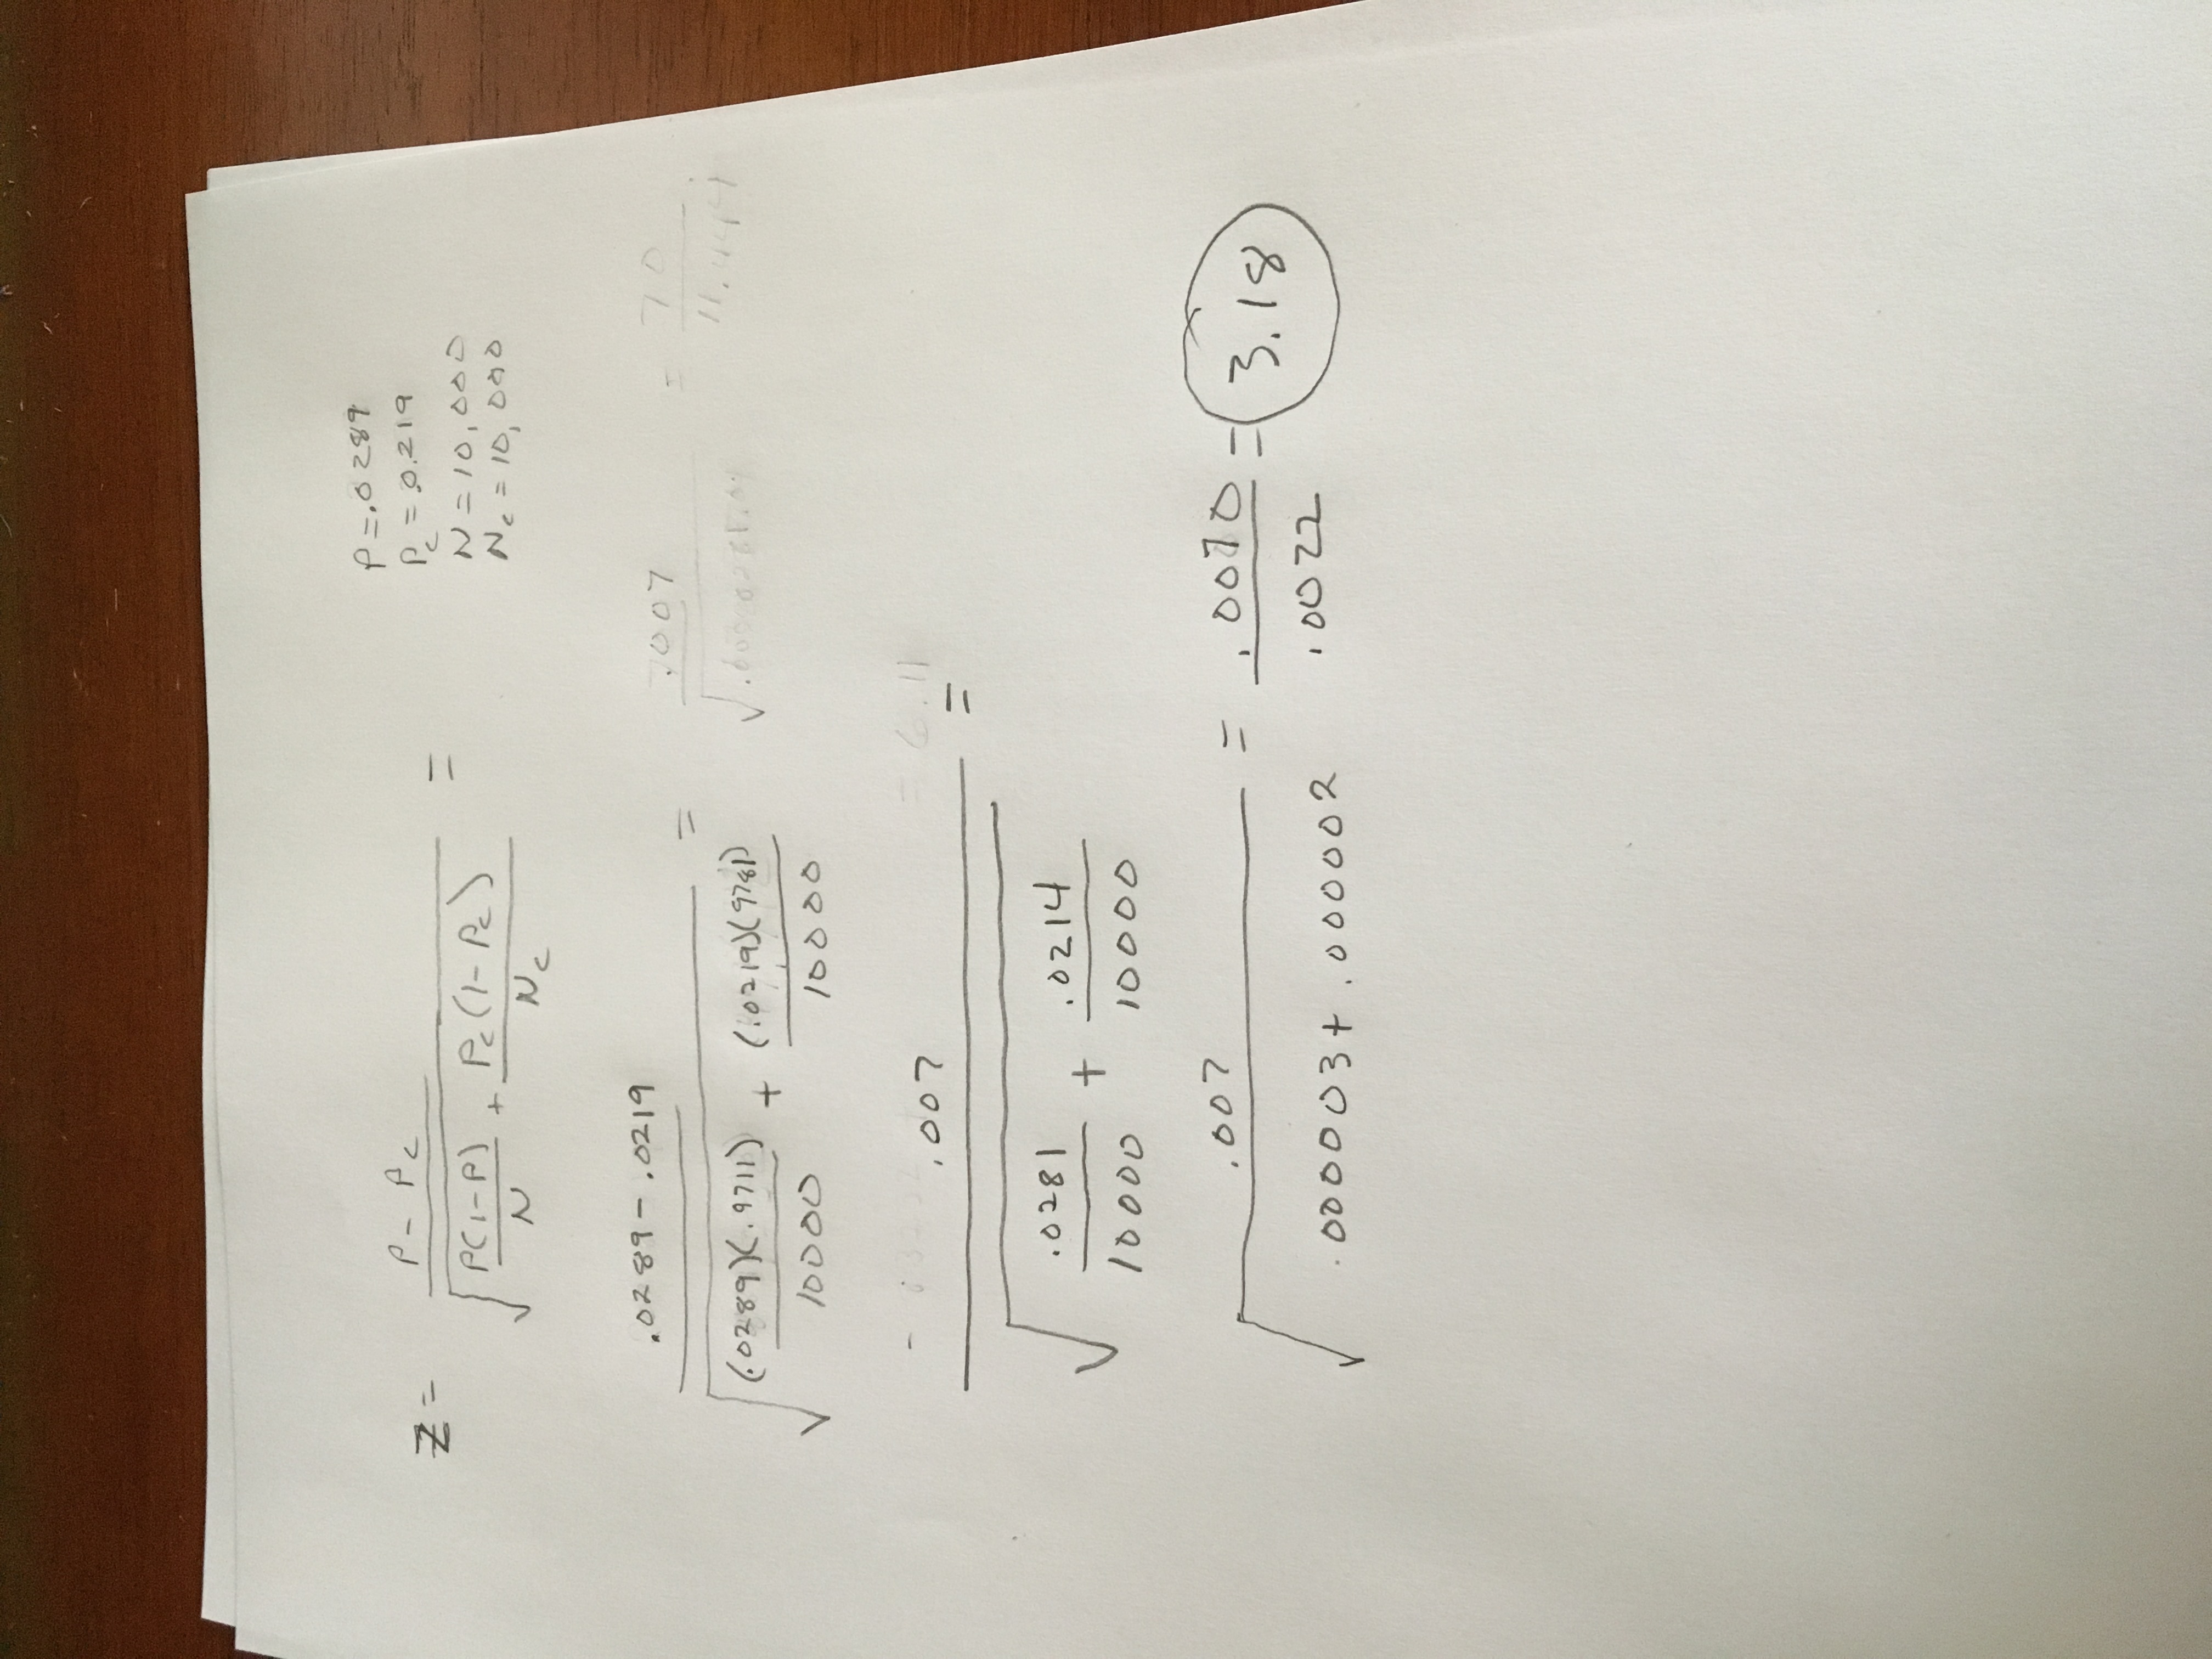 Z = P - Pc / √ P(1-P)/N + Pc(1-Pc)/Nc =
P = .0289
Pc = 0.219
N = 10,000
Nc = 10,000
.0289 - .0219 / √ (.0289)(.9711)/10000 + (.0219)(9781)/10000 =
.007
= 70
= 6.11
.007 / √ .0281/10000 + .0214/10000 =
.007 / √ .000003 + .000002 = .0070/.0022 = 3.18